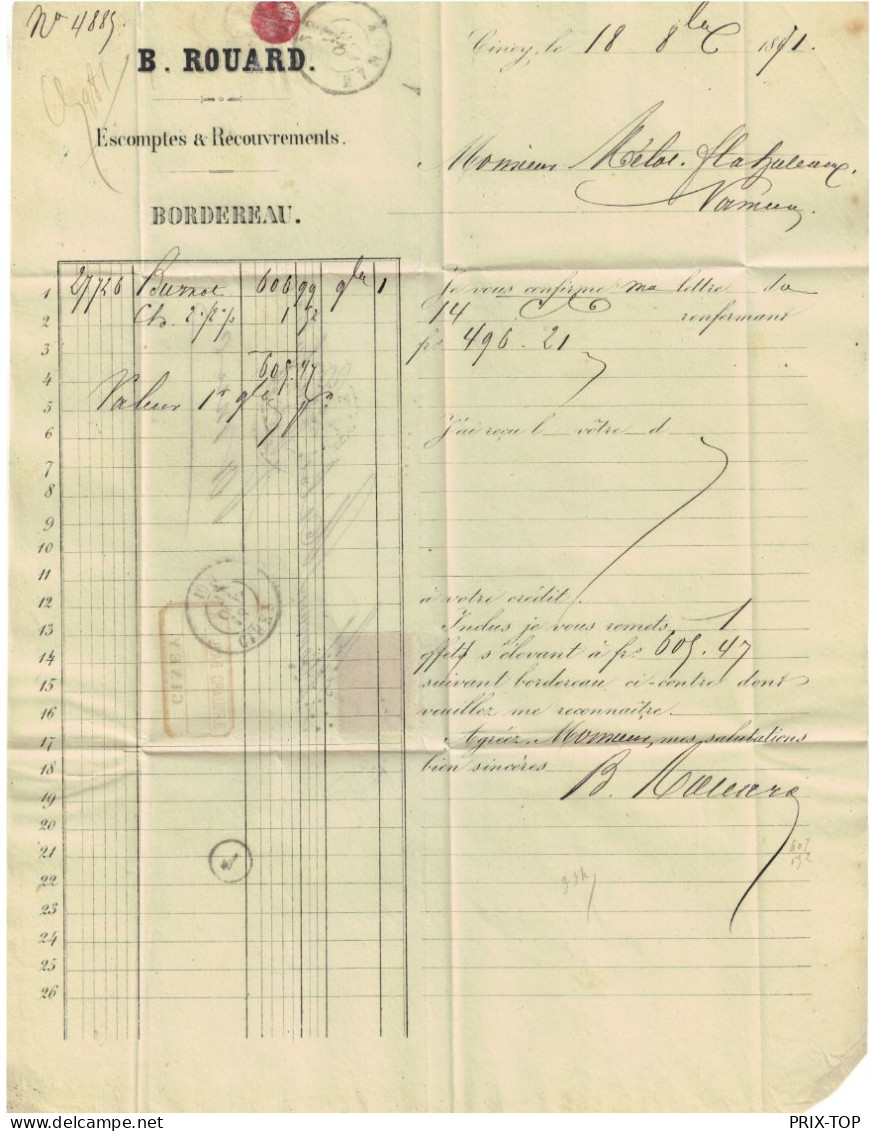 No 4885
B. ROUARD.
Escomptes & Recouvrements.
BORDEREAU.
Ciney, le 18 8bre 1871.
Monsieur
Namur
1 27726 606 99 9bre 1
2 1 52
3
4 605.47
5 Valeur 1r 9bre
6
7
8
9
10
11
12
13
14
15
16
17
18
19
20
21
22
23
24
25
26
Je vous confirme ma lettre du
14 renfermant
frs 496.21
J'ai reçu l votre d
à votre crédit.
Inclus je vous remets 1
effets s'élevant à frs 605.47
suivant bordereau ci-contre dont
veuillez me reconnaître.
Agréez, Monsieur, mes salutations
bien sincères
B. Rouard
CINEY
CINEY
PRIX-TOP